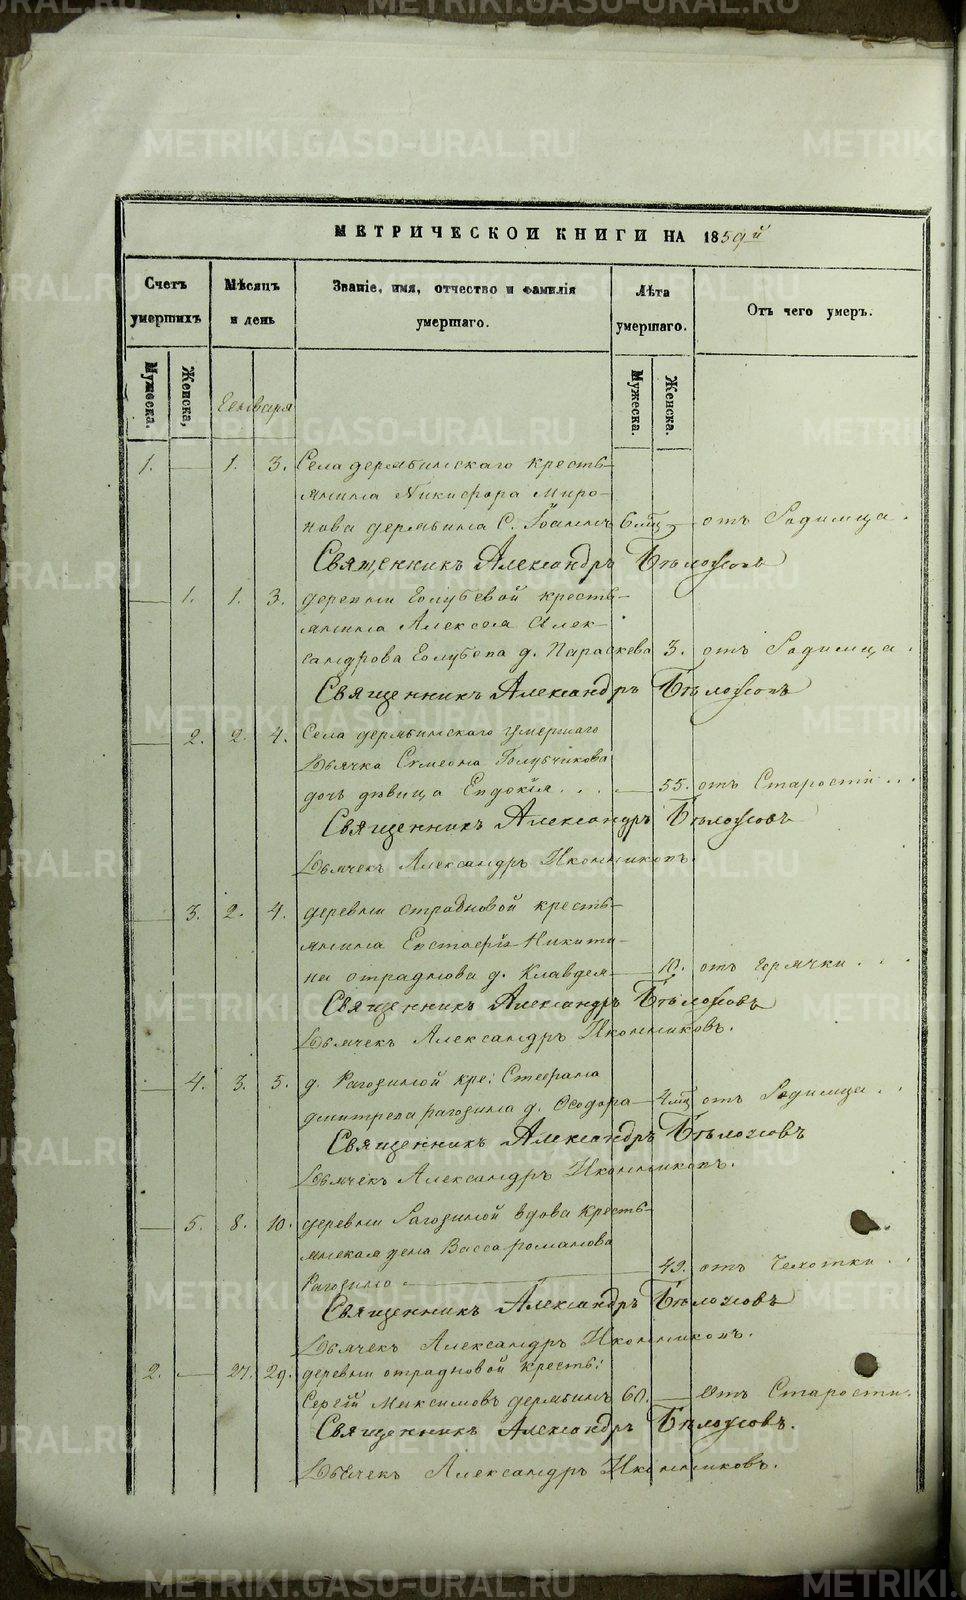 METRIKI.GASO-URAL.RU
МЕТРИЧЕСКОЙ КНИГИ НА 1859й
Счетъ умершихъ
Мѣсяцъ и день
Званіе, имя, отчество и фамилія умершаго.
Лѣта умершаго.
Отъ чего умеръ.
Мужеска.
Женска,
Генваря
Мужеска.
Женска.
1. 1. 3. Села дерябинскаго кресть-
янина Никифора Миро-
нова дерябина С. Іоаннъ 6 мц отъ Родимца.
Священникъ Александръ Бѣлоусовъ
1. 1. 3. деревни Голубевой кресть-
янина Алексея Алек-
сандрова Голубева д. Параскева 3. отъ Родимца.
Священникъ Александръ Бѣлоусовъ
2. 2. 4. Села дерябинскаго умершаго
Дьячка Симеона Голубчикова
дочь дѣвица Евдокія. 55. отъ Старости
Священникъ Александръ Бѣлоусовъ
Дьячекъ Александръ Иконниковъ.
3. 2. 4. деревни отрадновой кресть-
янина Евстафія Никити-
на отраднова д. Клавдея 10. отъ Горячки
Священникъ Александръ Бѣлоусовъ
Дьячекъ Александръ Иконниковъ.
4. 3. 5. д. Рагозиной кре: Стефана
дмитрева рагозина д. Феодора 4 мц отъ Родимца
Священникъ Александръ Бѣлоусовъ
Дьячекъ Александръ Иконниковъ.
5. 8. 10. деревни Рагозиной вдова кресть-
янская жена Васса романова
Рагозина 49. отъ Чехотки
Священникъ Александръ Бѣлоусовъ
Дьячекъ Александръ Иконниковъ.
2. 27. 29. деревни отрадновой кресть:
Сергій Максимовъ дерябинъ 60. Отъ Старости.
Священникъ Александръ Бѣлоусовъ.
Дьячекъ Александръ Иконниковъ.